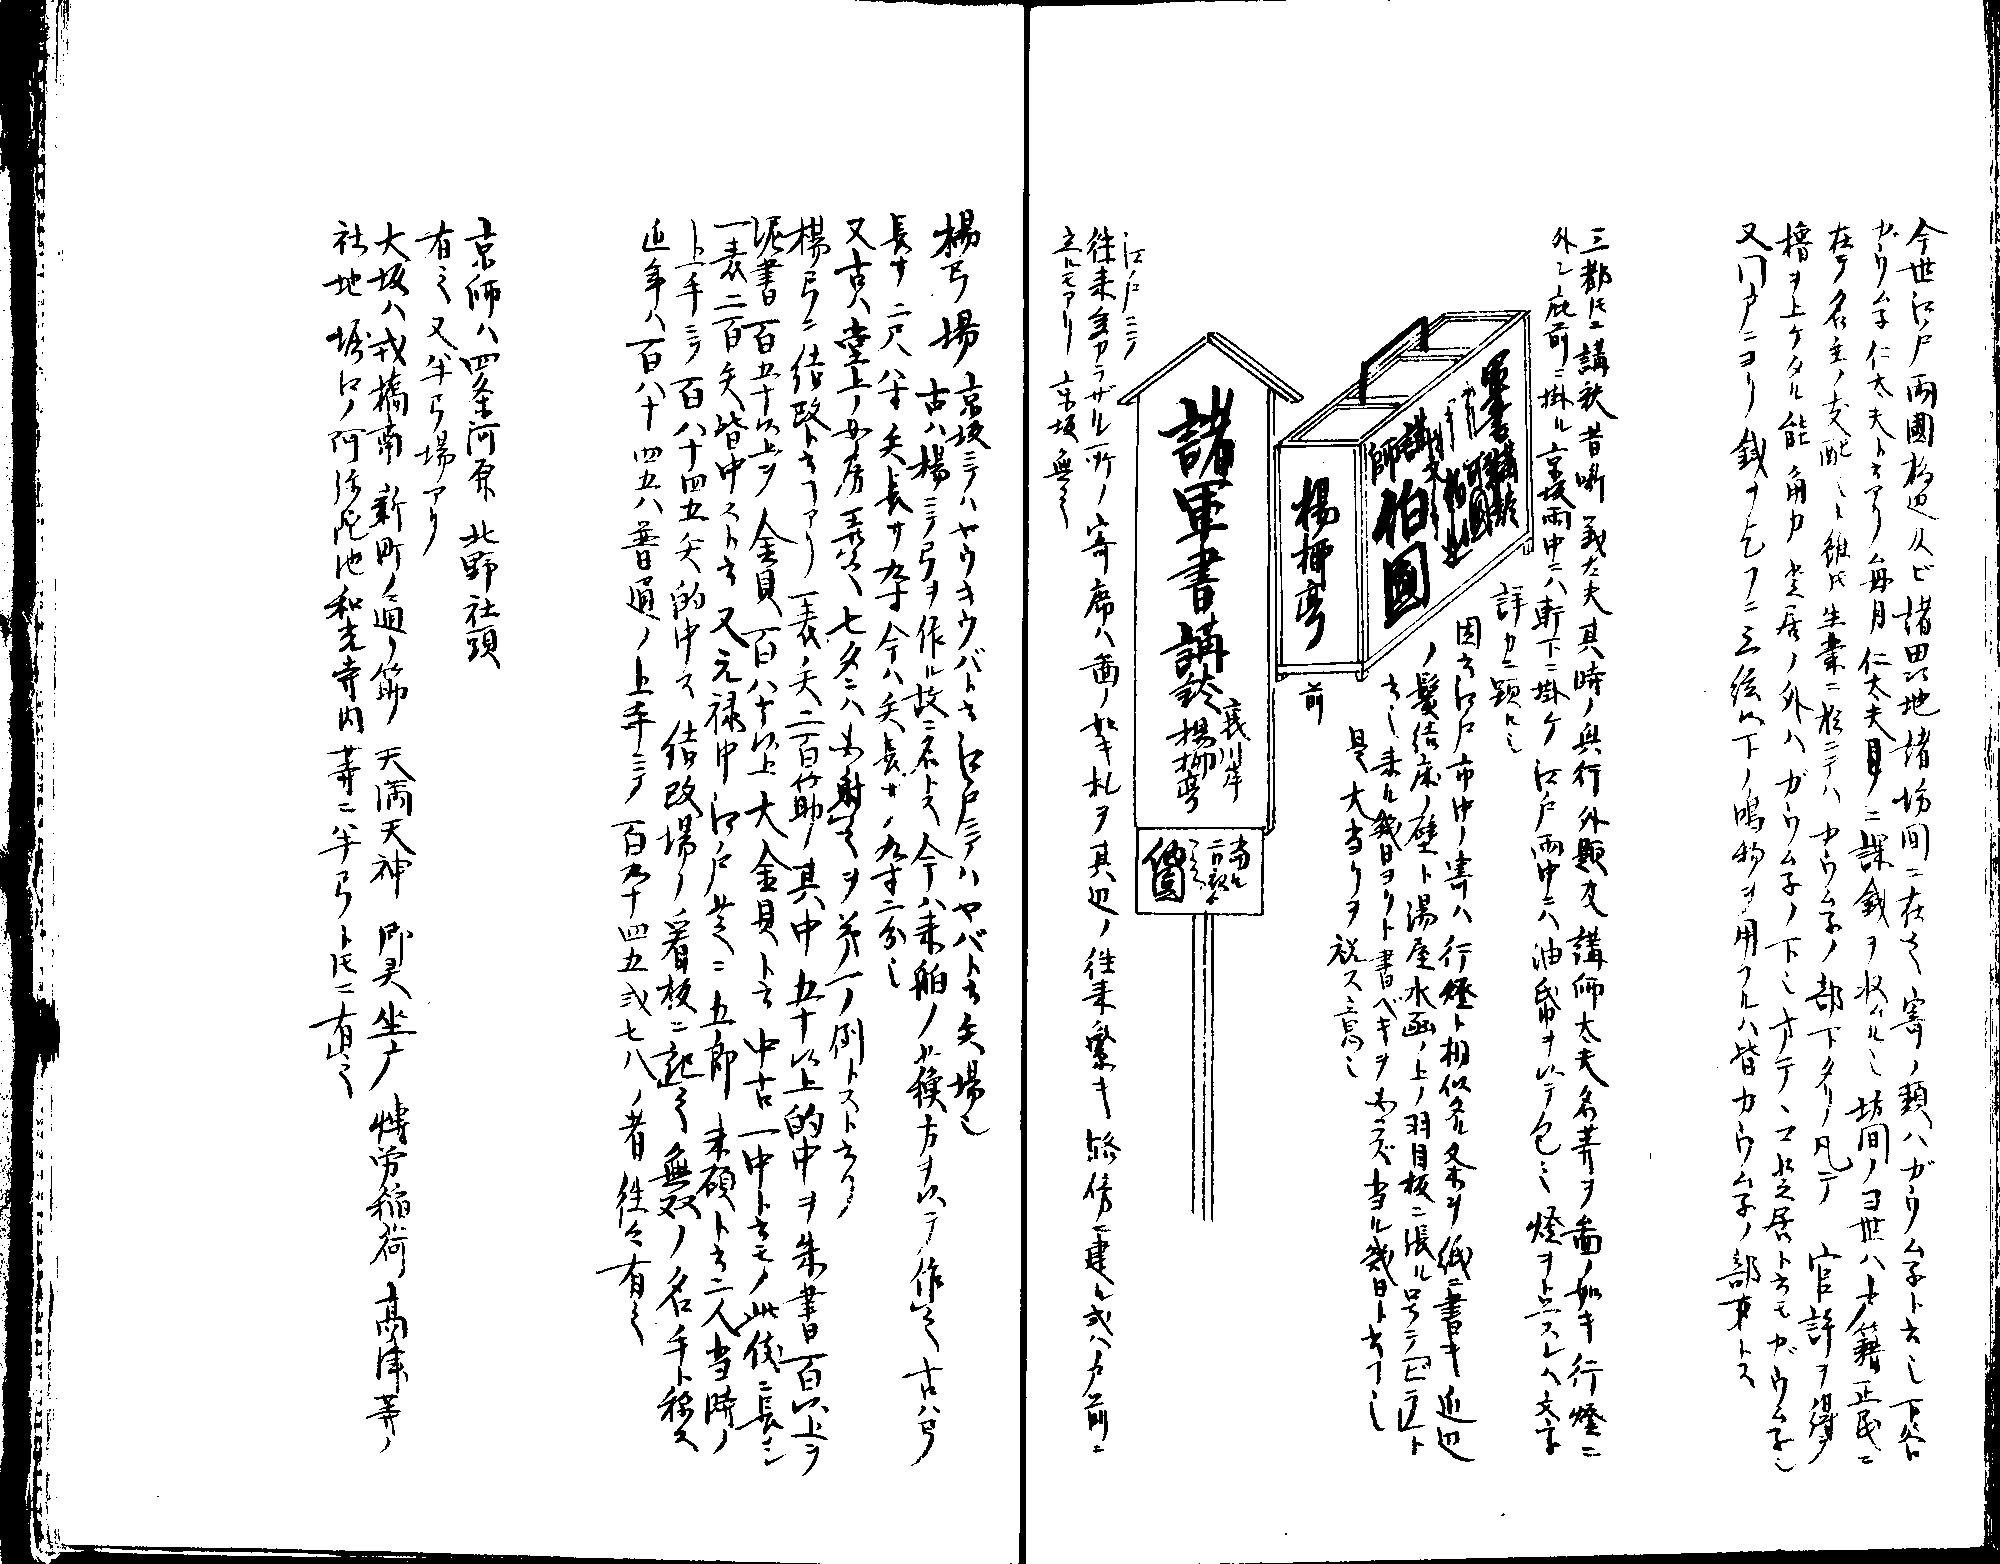 今世江戸両國橋辺及ビ諸田地諸坊間ニ在之寄ノ類ハガウムネト云也下谷ニ
ガウムネ仁太夫ト云アリ毎月仁太夫ヨリ課銭ヲ収ル也坊間ノヨセハ士籍正民ニ
在テ名主ノ支配ト雖氏生業ニ於ニテハガウムネノ部下タリ凡テ官許ヲ得
櫓ヲ上ケタル能角力芝居ノ外ハガウムネノ下也芝居ト云モガウムネ也
又門戸ニヨリ銭ヲ乞フニ三絃以下ノ鳴物ヲ用フルハ皆ガウムネノ部東トス
三都氏ニ講釈昔噺義太夫其時ノ興行外題及講師太夫名等ヲ圖ノ如キ行燈ニ
外シ庇前ニ掛ル京坂雨中ニハ軒下ニ掛ケ江戸雨中ニハ油帋ヲ以テ包ミ燈ヲトモスレハ文字
詳カニ顕ル也
因云江戸市中ノ寄ハ行燈ト相似タル条ヲ紙ニ書キ近辺
ノ髪結床ノ壁ト湯屋水函ノ上ノ羽目板ニ張ル号テビラト
云也来ル幾日ヨリト書ベキヲ当ル幾日ト云
是大当リヲ祝ス言
軍書講釈
講師
伯圓
楊柳亭
前
諸軍書講釈
楊柳亭
伯圓
江戸ニテ
往来多カラザル所ノ寄席ハ圖ノ如キ札ヲ其辺ノ往来繁キ路傍ニ建ル或ハ戸前ニ
立ルモアリ京坂無之
楊弓場京坂ニテハヤウキウバト云江戸ニテハヤバト云矢場也
古ハ楊ニテ弓ヲ作ル故ニ名トス今ハ来舶ノ蘇方ヲ以テ作之古ハ弓
長サ二尺八寸矢長サ九寸今ハ矢長サ九寸二分也
又古ハ堂上ノ女房弄之七夕ニハ必射之ヲ第一ノ例トスト云リ
楊弓ニ結改ト云フアリ一表ノ矢二百筋ノ其中五十以上的中ヲ朱書百以上ヲ
泥書百五十以上ヲ金貝百八十以上大金貝ト云中古一中ト云モノ此伎ニ長シ
一表二百矢皆中スト云又元禄中江戸芝ニ五郎未碩ト云二人当時ノ
上手ニテ百八十四五矢的中ス結改場ノ看板ニ記之無双ノ名手ト称ス
近年ハ百八十四五ハ普通ノ上手ニテ百九十四五或七八ノ者往々有之
京師ハ四条河原北野社頭
有之又半弓場アリ
大坂ハ戎橋南新町ノ通リ筋天満天神御灵坐广博労稲荷高津等ノ
社地堀江ノ阿弥陀池和光寺内等ニ半弓ト氏ニ有之